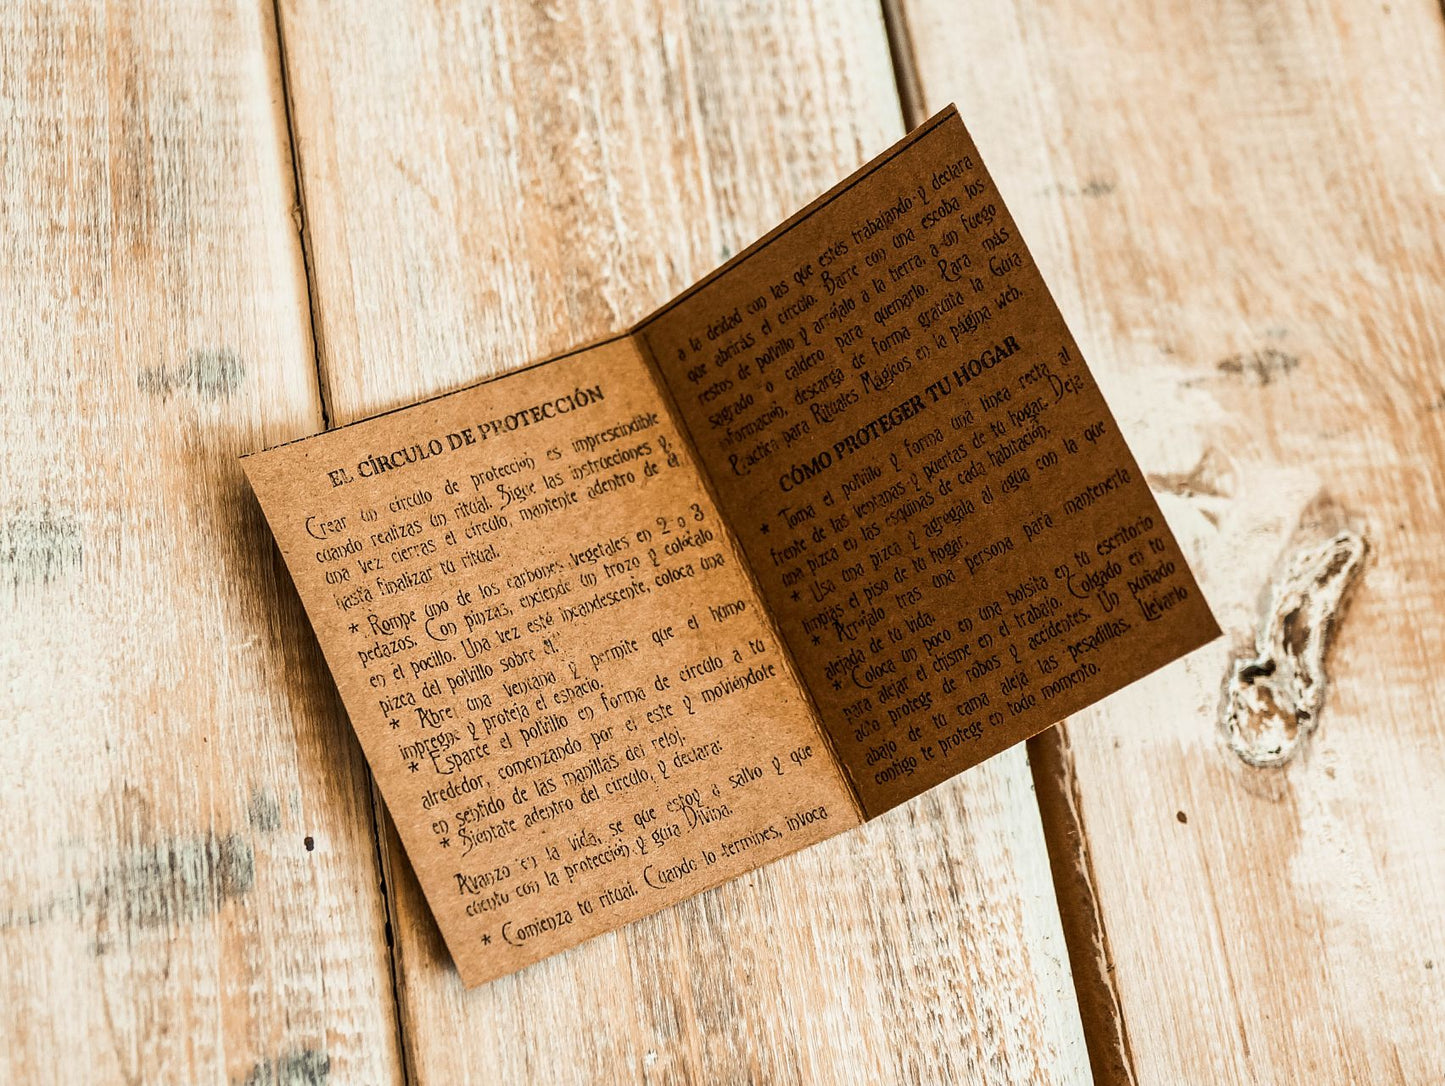 EL CÍRCULO DE PROTECCIÓN
Crear un círculo de protección es imprescindible
cuando realizas un ritual. Sigue las instrucciones y,
una vez cierres el círculo, mantente adentro de él
hasta finalizar tu ritual.
* Rompe uno de los carbones vegetales en 2 o 3
pedazos. Con pinzas, enciende un trozo y colócalo
en el pocillo. Una vez esté incandescente, coloca una
pizca del polvillo sobre él.
* Abre una ventana y permite que el humo
impregne y proteja el espacio.
* Esparce el polvillo en forma de círculo a tu
alrededor, comenzando por el este y moviéndote
en sentido de las manillas del reloj.
* Siéntate adentro del círculo, y declara:
Avanzo en la vida, se que estoy a salvo y que
cuento con la protección y guía Divina.
* Comienza tu ritual. Cuando lo termines, invoca
a la deidad con las que estés trabajando y declara
que abrirás el círculo. Barre con una escoba los
restos de polvillo y arrójalo a la tierra, a un fuego
sagrado o caldero para quemarlo. Para más
información, descarga de forma gratuita la Guía
Práctica para Rituales Mágicos en la página web.
CÓMO PROTEGER TU HOGAR
* Toma el polvillo y forma una línea recta al
frente de las ventanas y puertas de tu hogar. Deja
una pizca en las esquinas de cada habitación.
* Usa una pizca y agrégala al agua con la que
limpias el piso de tu hogar.
* Arrójalo tras una persona para mantenerla
alejada de tu vida.
* Coloca un poco en una bolsita en tu escritorio
para alejar el chisme en el trabajo. Colgado en tu
auto protege de robos y accidentes. Un puñado
abajo de tu cama aleja las pesadillas. Llevarlo
contigo te protege en todo momento.